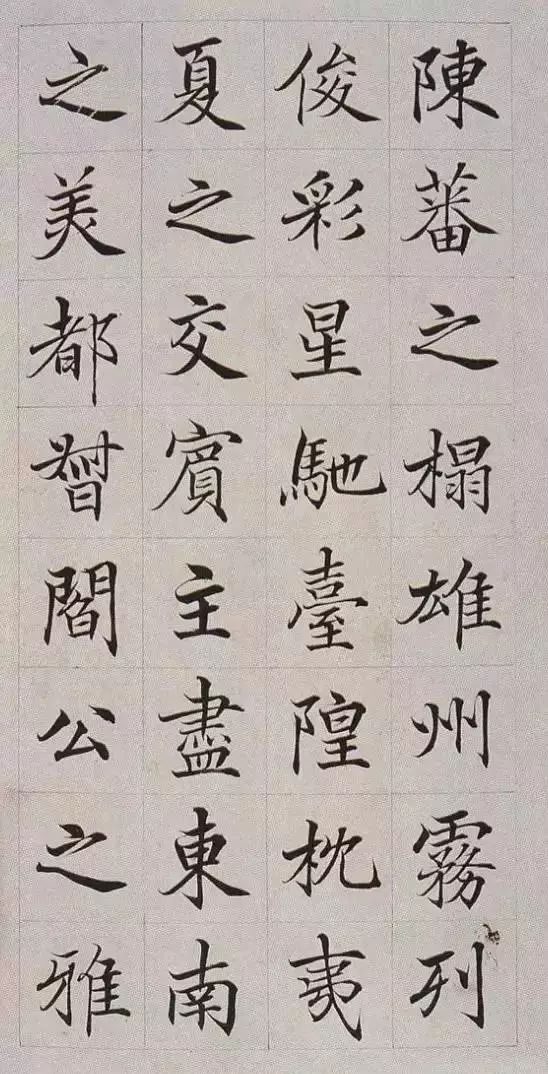 陳蕃之榻雄州霧列
俊彩星馳臺隍枕夷
夏之交賓主盡東南
之美都督閻公之雅